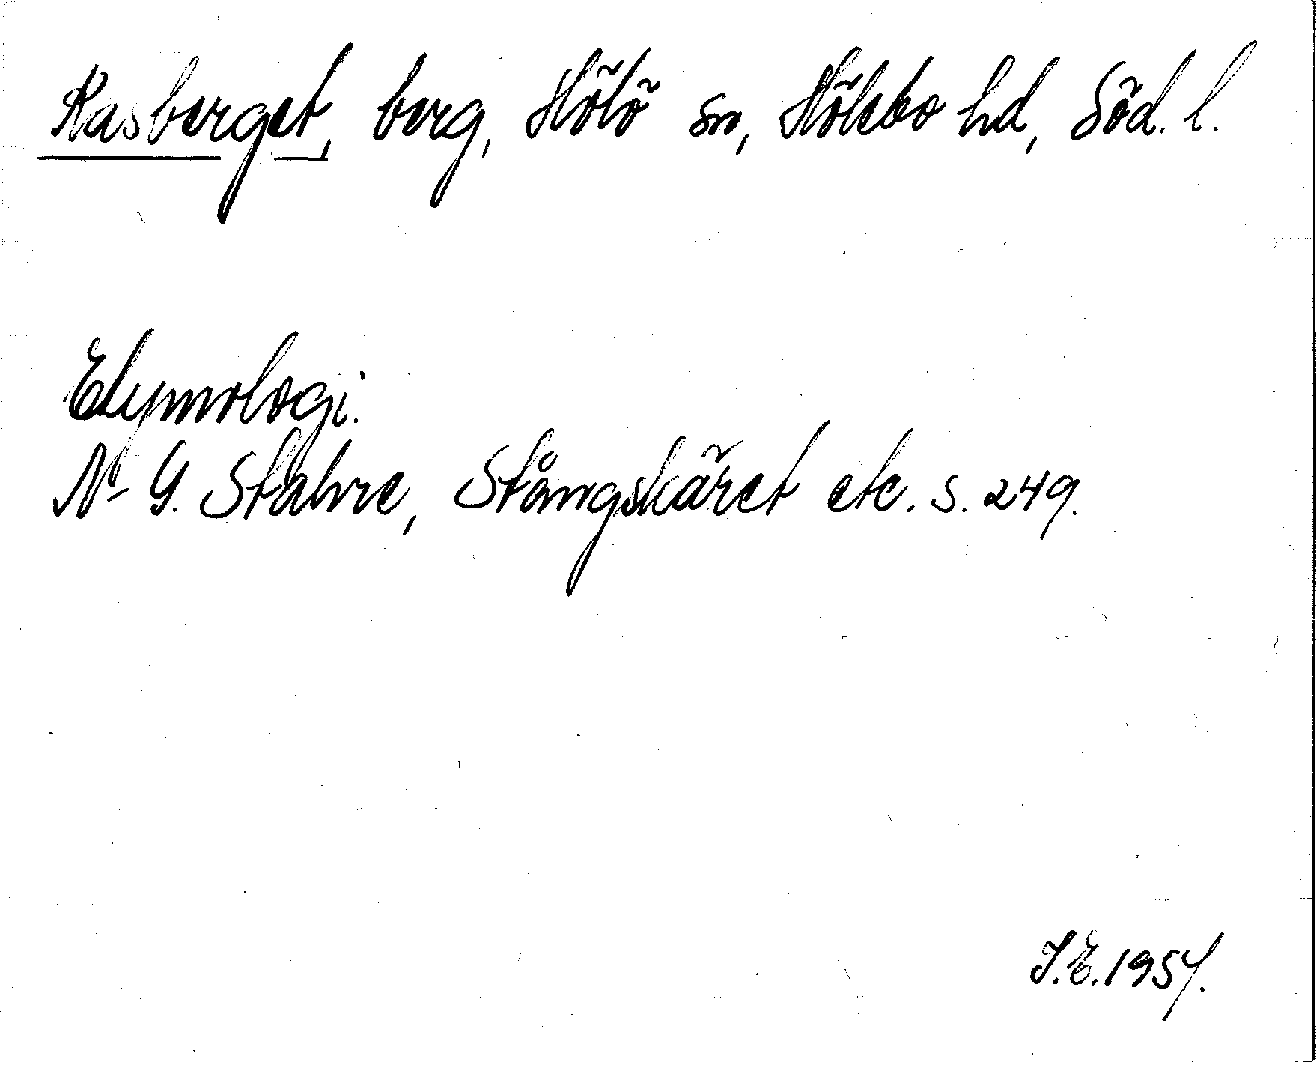 Rasberget, berg, Hölö sn, Hölebo hd, Söd. l.
Etymologi.
N-G. Stahre, Stångskäret etc. s. 249.
I.E. 1957.